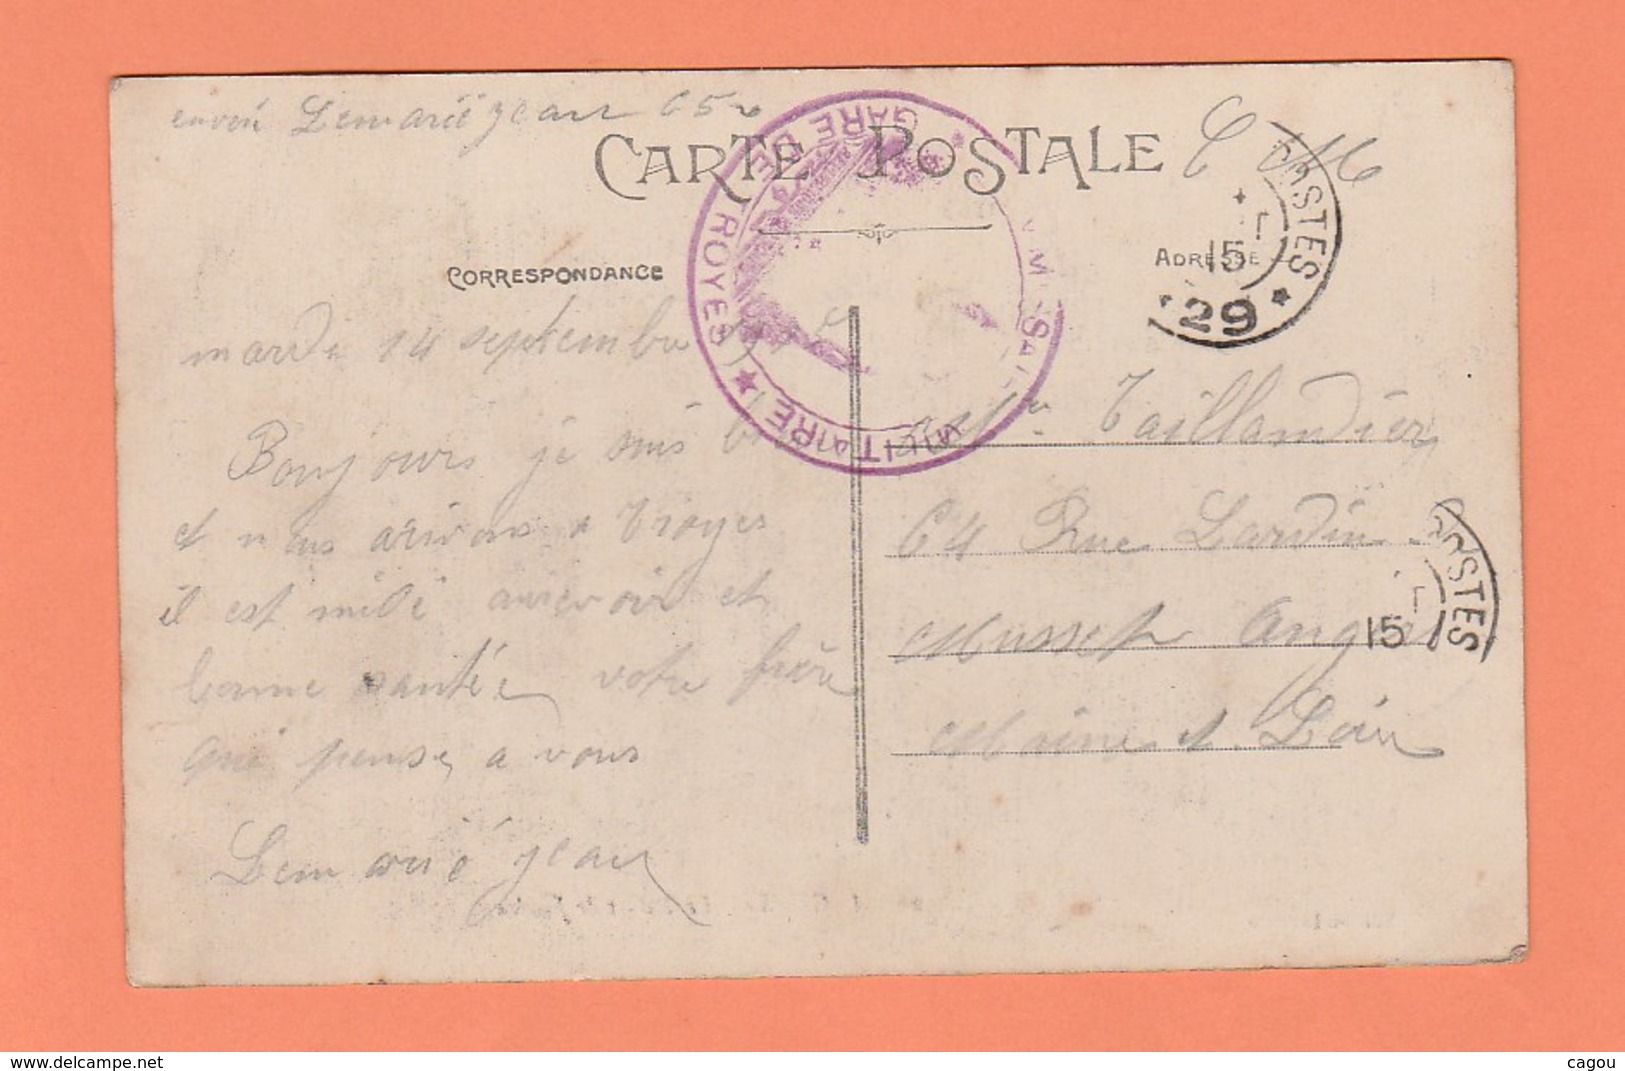 envoi Lemarié jean 65
CARTE POSTALE
C M
GARE DE TROYES
MILITAIRE
CORRESPONDANCE
ADRESSE
POSTES
15
29
mardi 14 septembre
Bonjours je suis
et nous arivons a Troyes
il est midi aurevoir et
bonne santée votre frère
qui pense a vous
Lemarié jean
Taillandier
64 Rue Lardin
Musset Angers
Maine et Loire
POSTES
15
delcampe.net
cagou